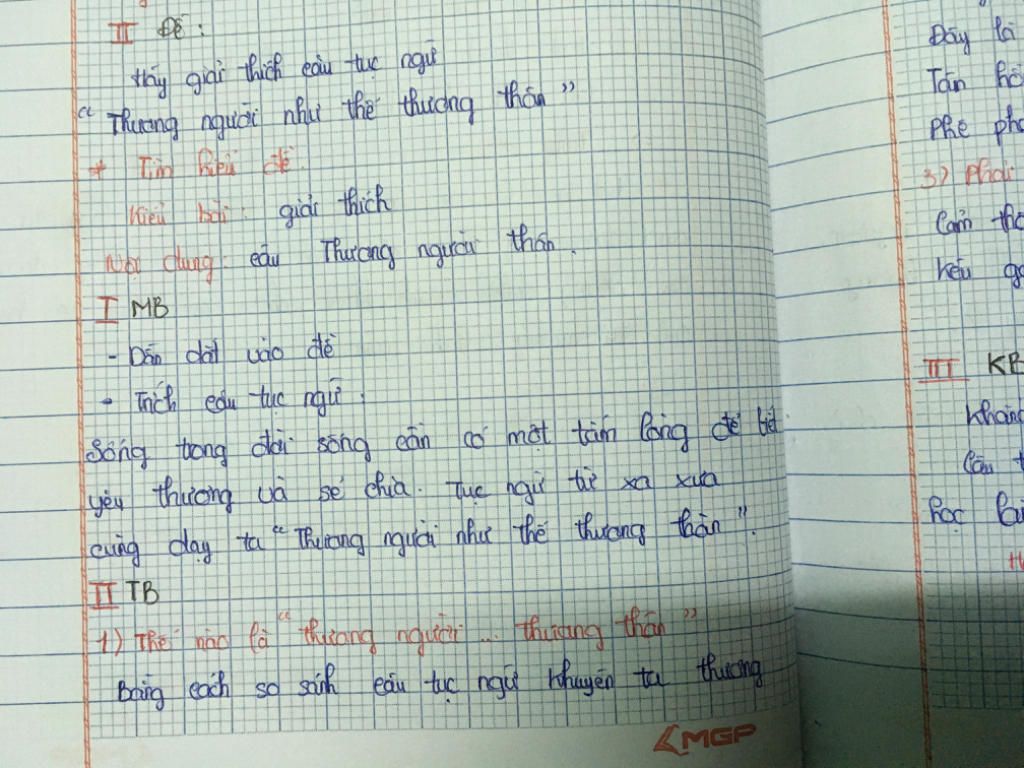 II Đề :
Hãy giải thích câu tục ngữ
“ Thương người như thể thương thân ”
* Tìm hiểu đề
Kiểu bài : giải thích
Nội dung : câu Thương người thân .
I MB
- Dẫn dắt vào đề
- Trích câu tục ngữ .
Sống trong đời sống cần có một tấm lòng để biết
yêu thương và sẻ chia . Tục ngữ từ xa xưa
cũng dạy ta “ Thương người như thể thương thân ” .
II TB
1 ) Thế nào là “ thương người ... thương thân ”
Bằng cách so sánh câu tục ngữ khuyên ta thương
MGP
Đây là
Phê
3 ) Phải
III KB
học